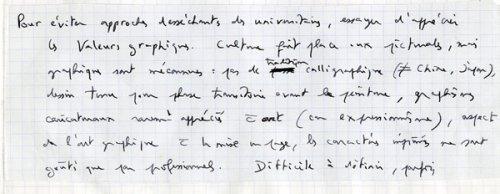 Pour éviter approches desséchants des universitaires, essayer d'apprécier
les valeurs graphiques. Culture fait place aux picturales, mais
graphiques sont méconnues : pas de tradition calligraphique (≠ Chine, Japon),
dessin tenu pour phase transitoire avant la peinture, graphismes
caricaturaux rarement appréciés c̄ art (ou expressionnisme), aspect
de l'art graphique c̄ la mise en page, les caractères imprimés ne sont
goûtés que par professionnels. Difficile à définir, parfois